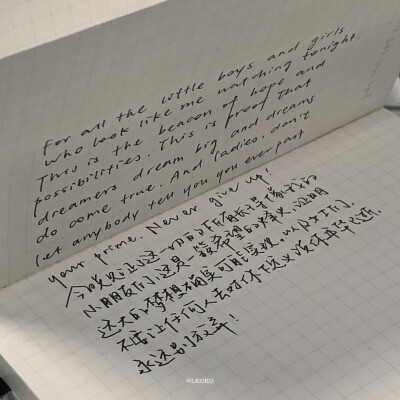 For all the little boys and girls
who look like me watching tonight.
This is the beacon of hope and
possibilities. This is proof that
dreamers dream big and dreams
do come true. And ladies, don't
let anybody tell you you ever past
your prime. Never give up!
今晚见证这一切的所有长得像我的
小朋友们,这是一簇希望的火,证明
远大的梦想确实可能实现。女士们,
不要让任何人去对你下定义说你年华已逝,
永远别放弃!
@LKOKO